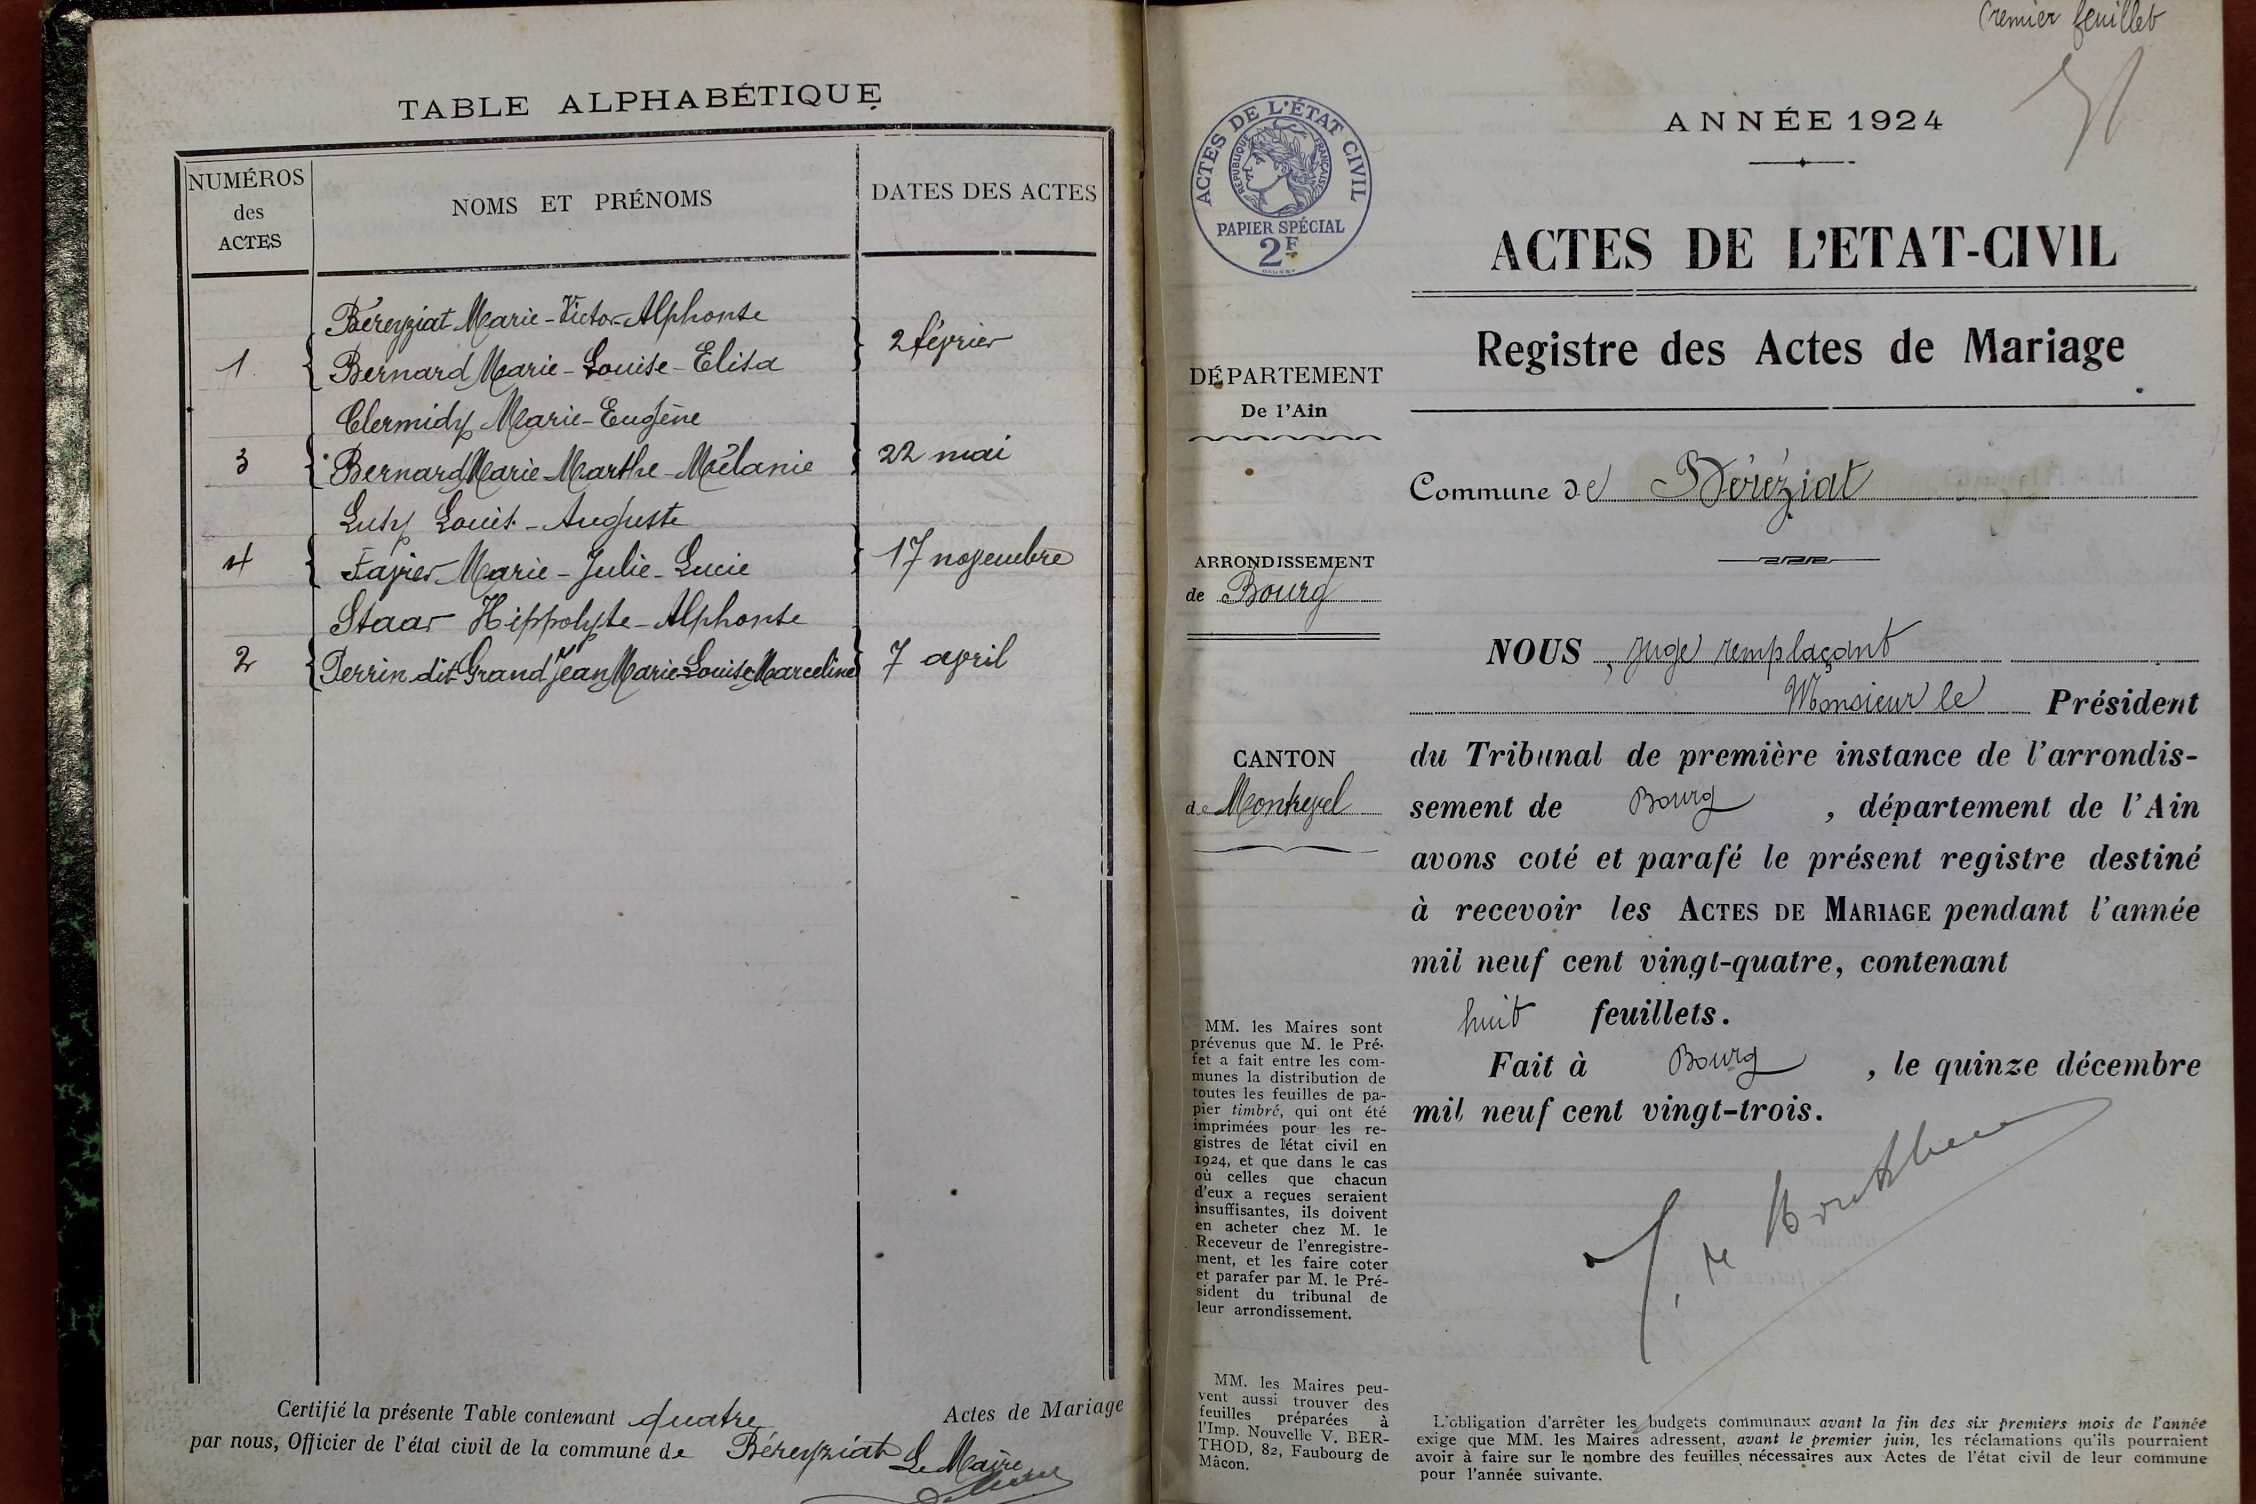 TABLE ALPHABÉTIQUE
NUMÉROS
des
ACTES
NOMS ET PRÉNOMS
DATES DES ACTES
Béreyziat Marie-Victor-Alphonse
1 Bernard Marie-Louise-Elisa 2 février
Clermidy Marie-Eugène
3 Bernard Marie-Marthe-Mélanie 22 mai
Luty Louis-Auguste
4 Favier Marie-Julie-Lucie 17 novembre
Staar Hippolyte-Alphonse
2 Perrin dit Grand Jean Marie-Louise Marceline 7 avril
Certifié la présente Table contenant quatre Actes de Mariage
par nous, Officier de l'état civil de la commune de Béreyziat Le Maire
Premier feuillet
ACTES DE L'ÉTAT CIVIL
RÉPUBLIQUE FRANÇAISE
PAPIER SPÉCIAL
2F
ANNÉE 1924
ACTES DE L'ETAT-CIVIL
Registre des Actes de Mariage
DÉPARTEMENT
De l'Ain
Commune de Béréziat
ARRONDISSEMENT
de Bourg
CANTON
de Montrevel
NOUS, juge remplaçant
Monsieur le Président
du Tribunal de première instance de l'arrondis-
sement de Bourg, département de l'Ain
avons coté et parafé le présent registre destiné
à recevoir les ACTES DE MARIAGE pendant l'année
mil neuf cent vingt-quatre, contenant
huit feuillets.
Fait à Bourg, le quinze décembre
mil neuf cent vingt-trois.
MM. les Maires sont
prévenus que M. le Pré-
fet a fait entre les com-
munes la distribution de
toutes les feuilles de pa-
pier timbré, qui ont été
imprimées pour les re-
gistres de l'état civil en
1924, et que dans le cas
où celles que chacun
d'eux a reçues seraient
insuffisantes, ils doivent
en acheter chez M. le
Receveur de l'enregistre-
ment, et les faire coter
et parafer par M. le Pré-
sident du tribunal de
leur arrondissement.
MM. les Maires peu-
vent aussi trouver des
feuilles préparées à
l'Imp. Nouvelle V. BER-
THOD, 82, Faubourg de
Mâcon.
L'obligation d'arrêter les budgets communaux avant la fin des six premiers mois de l'année
exige que MM. les Maires adressent, avant le premier juin, les réclamations qu'ils pourraient
avoir à faire sur le nombre des feuilles nécessaires aux Actes de l'état civil de leur commune
pour l'année suivante.